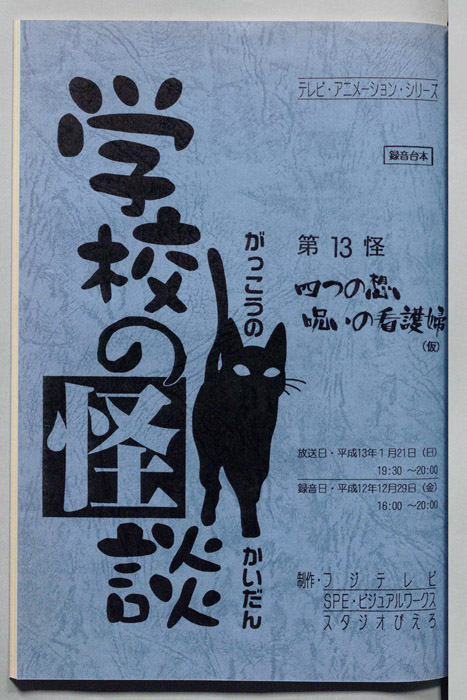 テレビ・アニメーション・シリーズ
録音台本
学校の怪談
がっこうの
かいだん
第13怪
四つの怨、
呪いの看護婦
(仮)
放送日・平成13年1月21日(日)
19:30 ~20:00
録音日・平成12年12月29日(金)
16:00 ~20:00
制作・フジテレビ
SPE・ビジュアルワークス
スタジオぴえろ